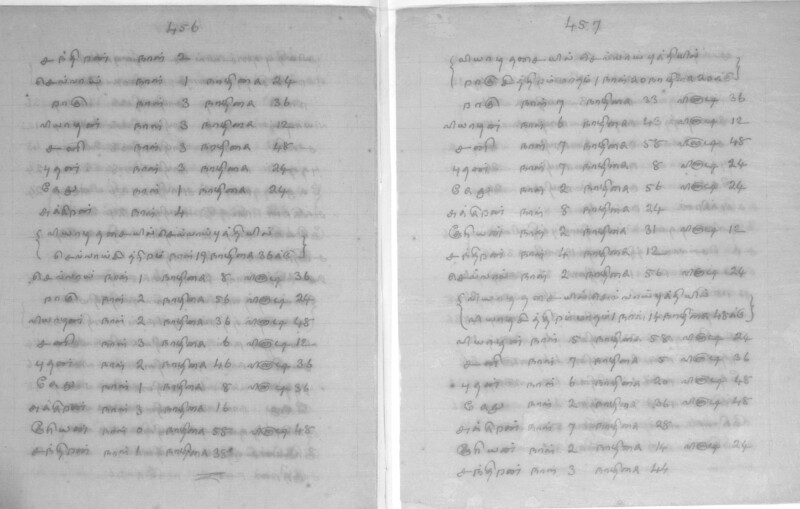 456
சந்திரன் நாள் 2
செவ்வாய் நாள் 1 நாழிகை 24
ராகு நாள் 3 நாழிகை 36
வியாழன் நாள் 3 நாழிகை 12
சனி நாள் 3 நாழிகை 48
புதன் நாள் 3 நாழிகை 24
கேது நாள் 1 நாழிகை 24
சுக்கிரன் நாள் 4
வியாழ தசையில் செவ்வாய் புத்தியில்
செவ்வாய் நாள் 19 நாழிகை 36க்கு
செவ்வாய் நாள் 1 நாழிகை 8 விநாடி 36
ராகு நாள் 2 நாழிகை 56 விநாடி 24
வியாழன் நாள் 2 நாழிகை 36 விநாடி 48
சனி நாள் 3 நாழிகை 6 விநாடி 12
புதன் நாள் 2 நாழிகை 46 விநாடி 36
கேது நாள் 1 நாழிகை 8 விநாடி 36
சுக்கிரன் நாள் 3 நாழிகை 16
சூரியன் நாள் 0 நாழிகை 58 விநாடி 48
சந்திரன் நாள் 1 நாழிகை 38
457
வியாழ தசையில் செவ்வாய் புத்தியில்
ராகு 1 நாள் 20 நாழிகை
ராகு நாள் 7 நாழிகை 33 விநாடி 36
வியாழன் நாள் 6 நாழிகை 43 விநாடி 12
சனி நாள் 7 நாழிகை 58 விநாடி 48
புதன் நாள் 7 நாழிகை 8 விநாடி 24
கேது நாள் 2 நாழிகை 56 விநாடி 24
சுக்கிரன் நாள் 8 நாழிகை 24
சூரியன் நாள் 2 நாழிகை 31 விநாடி 12
சந்திரன் நாள் 4 நாழிகை 12
செவ்வாய் நாள் 2 நாழிகை 56 விநாடி 24
வியாழ தசையில் செவ்வாய் புத்தியில்
வியாழ 1 நாள் 14 நாழிகை 48க்கு
வியாழன் நாள் 5 நாழிகை 58 விநாடி 24
சனி நாள் 7 நாழிகை 5 விநாடி 36
புதன் நாள் 6 நாழிகை 20 விநாடி 48
கேது நாள் 2 நாழிகை 36 விநாடி 48
சுக்கிரன் நாள் 7 நாழிகை 28
சூரியன் நாள் 2 நாழிகை 14 விநாடி 24
சந்திரன் நாள் 3 நாழிகை 44